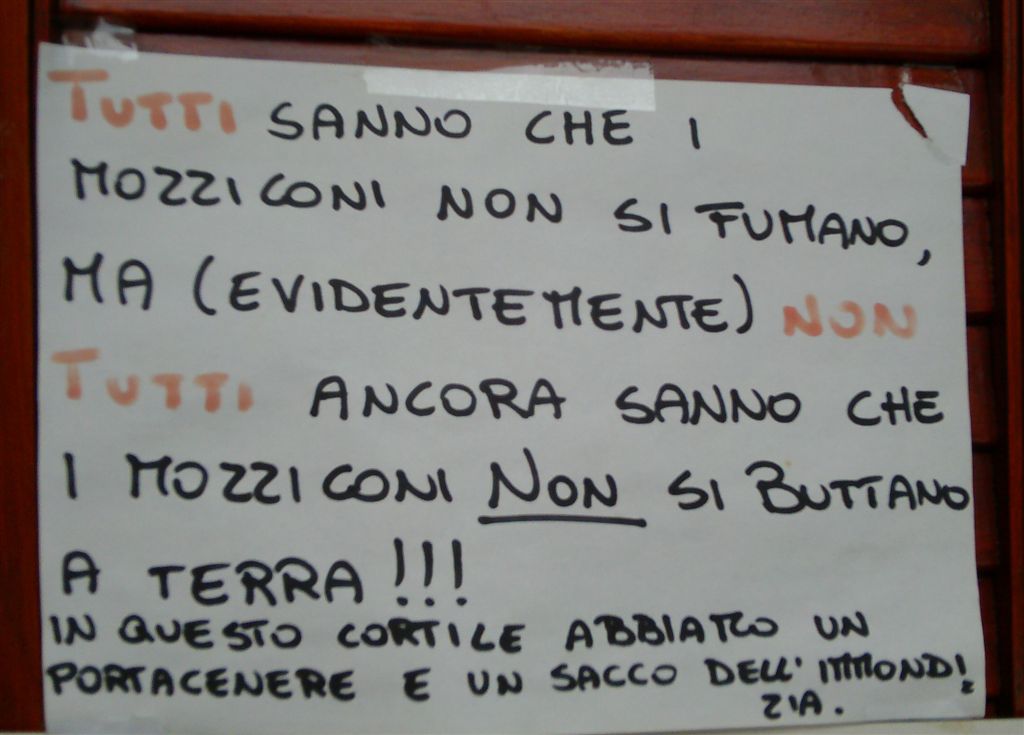 TUTTI SANNO CHE I
MOZZICONI NON SI FUMANO,
MA (EVIDENTEMENTE) NON
TUTTI ANCORA SANNO CHE
I MOZZICONI NON SI BUTTANO
A TERRA!!!
IN QUESTO CORTILE ABBIAMO UN
PORTACENERE E UN SACCO DELL'IMMONDI
ZIA.